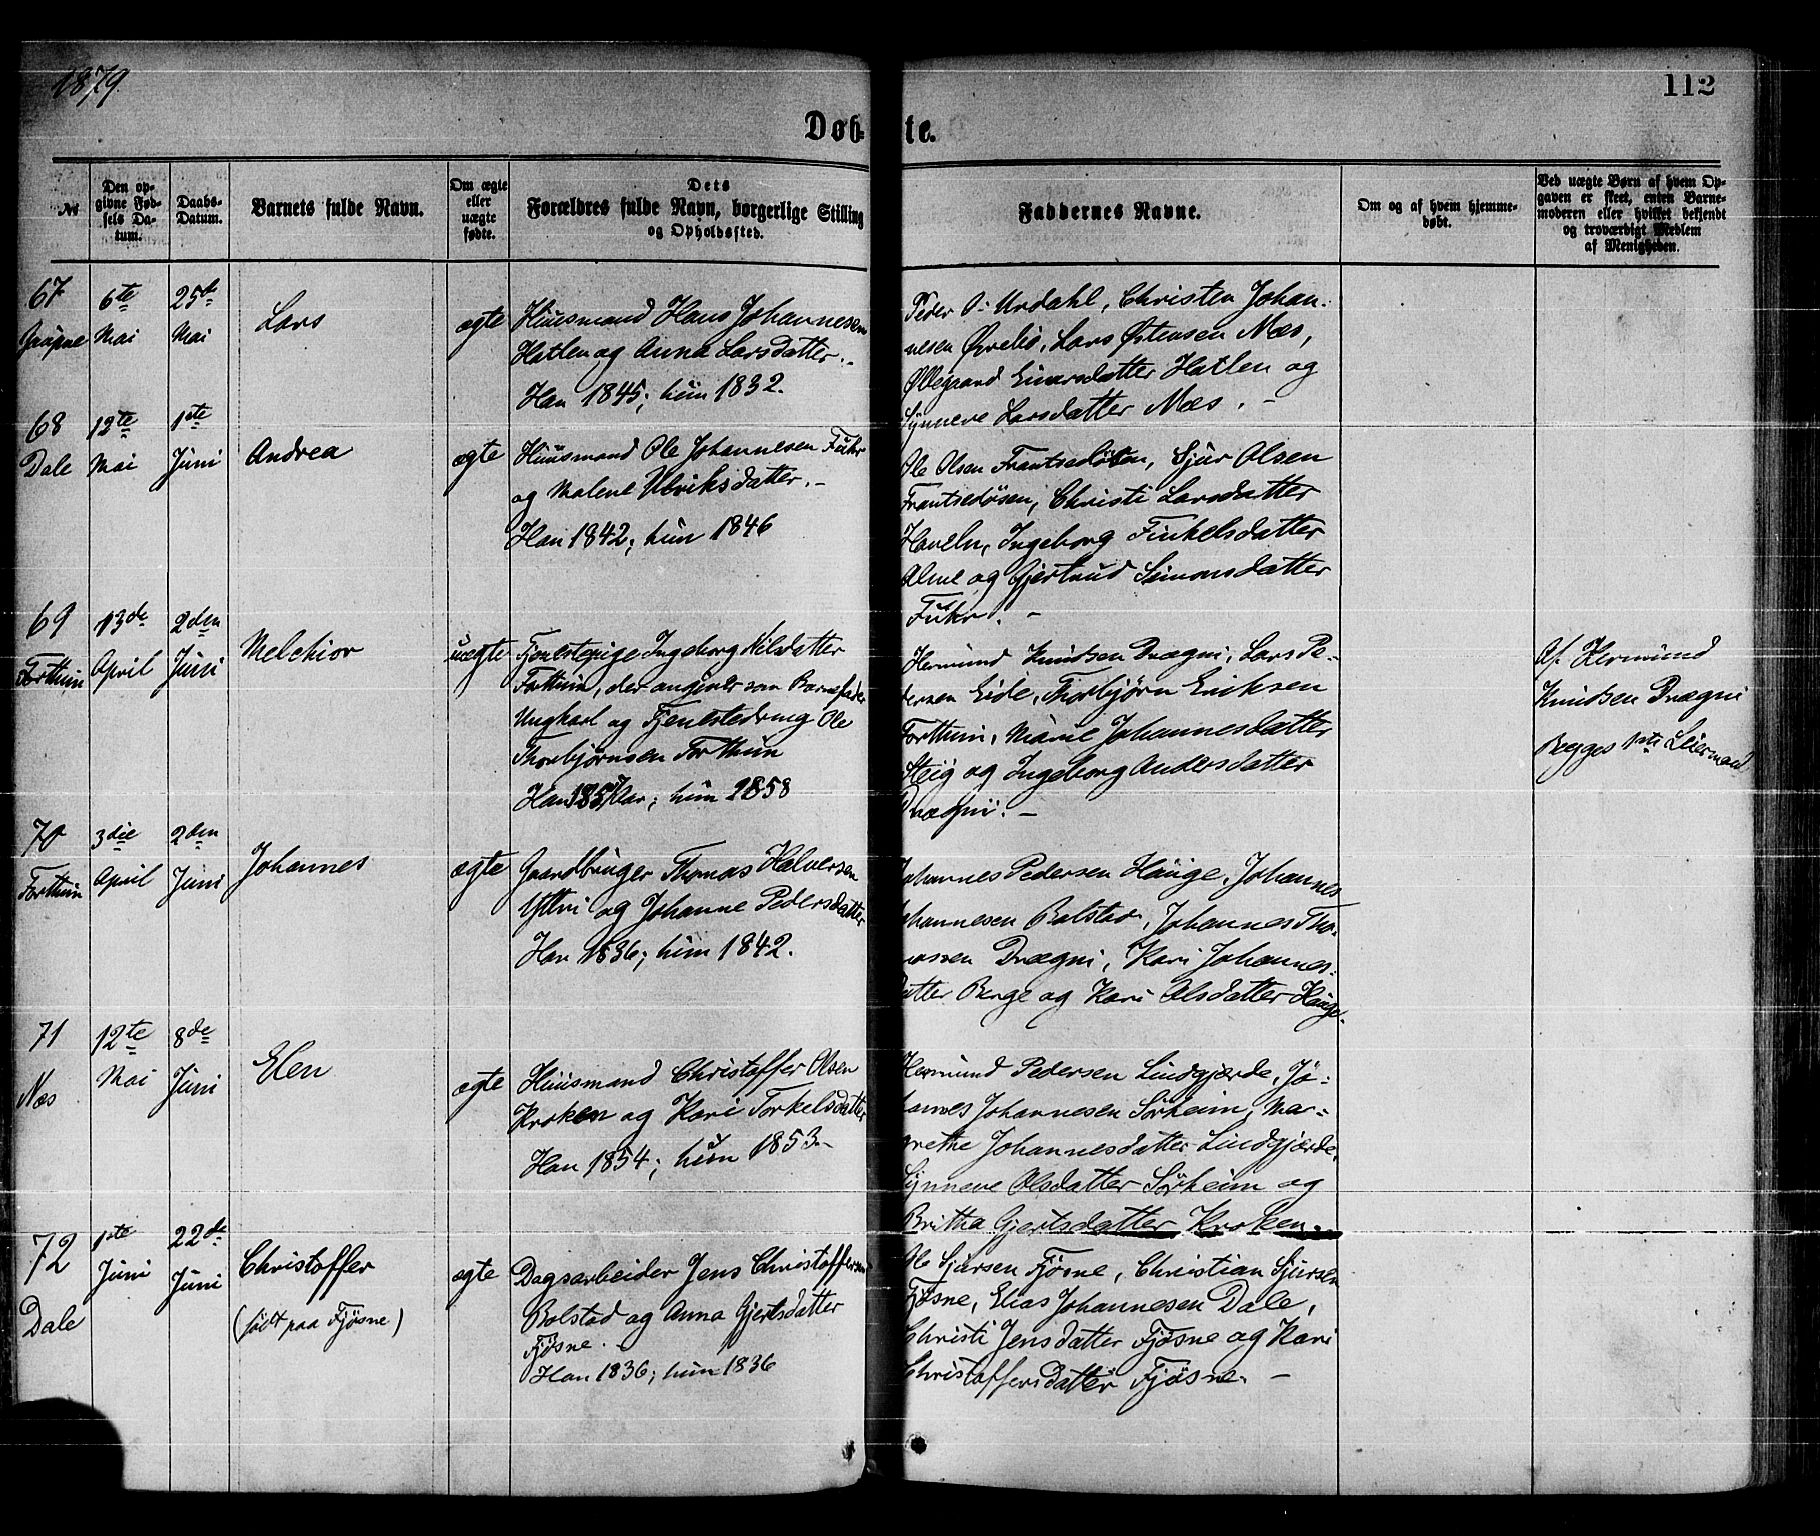 1879.
112
Døb-te.
№
Den op-
givne Fød-
sels Da-
tum.
Daabs-
Datum.
Barnets fulde Navn.
Om ægte
eller
uægte
fødte.
Dets
Forældres fulde Navn, borgerlige Stilling
og Opholdssted.
Faddernes Navne.
Om og af hvem hjemme-
døbt.
Ved uægte Børn af hvem Op-
gaven er skeet, enten Barne-
moderen eller hvilket bekjendt
og troværdigt Medlem
af Menigheden.
67
6te
Mai
25de
Mai
Lars
ægte
Huusmand Hans Johannesen
Hatlen og Anna Larsdatter.-
Han 1845; hun 1832.
Peder O. Urdahl, Christen Johan-
nesen Øvrebø, Lars Østensen Næs,
Øllegaard Einarsdatter Hatlen og
Synneve Larsdatter Næs. -
68
Dale
12te
Mai
1ste
Juni
Andrea
ægte
Huusmand Ole Johannesen Fuhr
og Malene Ulriksdatter.-
Han 1842; hun 1846
Ole Olsen Frantsedøsen, Sjur Olsen
Frantsedøsen, Christi Larsdatter
Haveln, Ingeborg Finkelsdatter
Alme og Gjertrud Simonsdatter
Fuhr. -
69
Forthun
13de
April
2den
Juni
Melchior
uægte
Tjenestepige Ingeborg Nilsdatter
Forthun, der angiver som Barnefader
Ungkarl og Tjenestedreng Ole
Thorbjørnsen Forthun
Han 1857; hun 1858
Hermund Knudsen Drægni, Lars Pe-
dersen Eide, Thorbjørn Eriksen
Forthun, Marie Johannesdatter
Steig og Ingeborg Andersdatter
Drægni. -
Af Hermund
Knudsen Drægni
Begges 1ste Leiermaal
70
Forthun
3die
April
2den
Juni
Johannes
ægte
Gaardbruger Thomas Halversen
Yttri og Johanne Pedersdatter
Han 1836; hun 1842.
Johannes Pedersen Hauge, Johannes
Johannesen Bolstad, Johannes Tho-
massen Drægni, Kari Johannes-
datter Berge og Kari Olsdatter Hauge.
71
Næs
12te
Mai
8de
Juni
Elen
ægte
Huusmand Christoffer Olsen
Kroken og Kari Torkelsdatter
Han 1854; hun 1853.-
Hermund Pedersen Lindgjærde, Jo-
hannes Johannesen Sørheim, Mar-
grethe Johannesdatter Lindgjærde,
Synneve Olsdatter Sørheim og
Britha Gjertsdatter Kroken.
72
Dale
1ste
Juni
22de
Juni
Christoffer
(født paa Fjøsne)
ægte
Dagsarbeider Jens Christoffersen
Bolstad og Anna Gjertsdatter
Fjøsne. -
Han 1836; hun 1836
Ole Sjursen Fjøsne, Christian Sjursen
Fjøsne, Elias Johannesen Dale,
Christi Jensdatter Fjøsne og Kari
Christoffersdatter Fjøsne. -